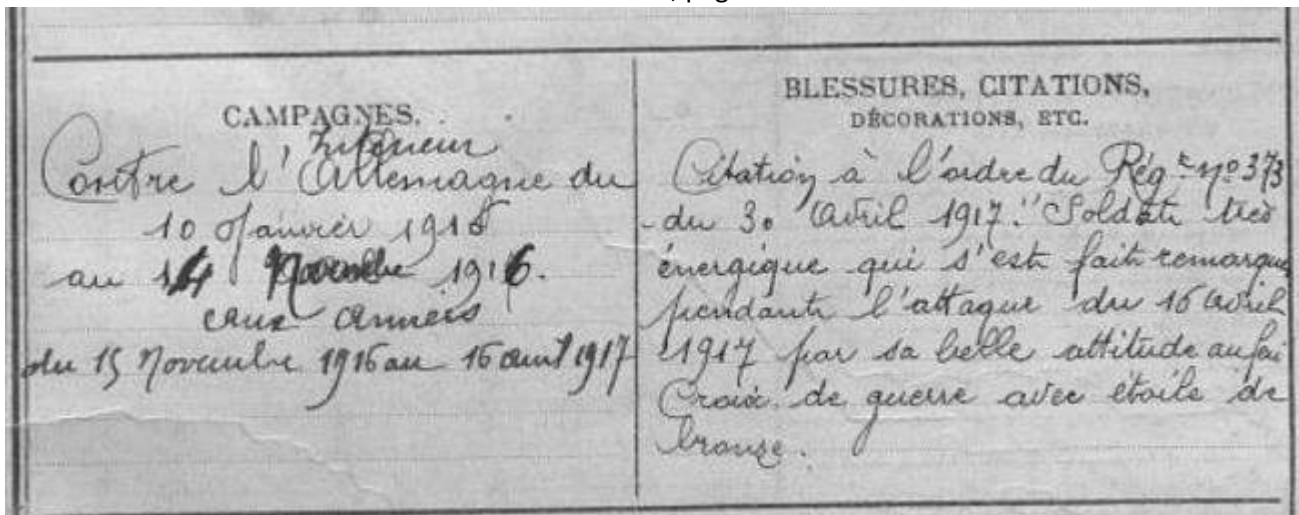 CAMPAGNES.
Intérieur
Contre l'Allemagne du
10 Janvier 1916
au 14 Novembre 1916.
aux Armées
du 15 Novembre 1916 au 16 août 1917
BLESSURES, CITATIONS,
DÉCORATIONS, ETC.
Citation à l'ordre du Rég.t nº 373
du 30 Avril 1917. "Soldat très
énergique qui s'est fait remarque
pendant l'attaque du 16 avril
1917 par sa belle attitude au feu
Croix de guerre avec étoile de
bronze.